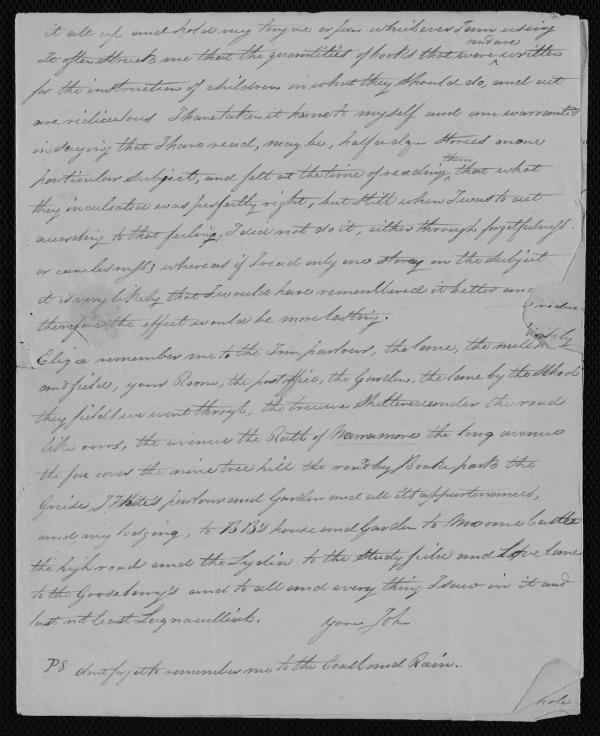 it all up and hold my tongue or pen whichever I am using
It often struck me that the quantities of books that were and are written
for the instruction of children in what they should do, and act
are ridiculous I have taken it home to myself and am warranted
in saying that I have read, may be, half a dozn stories on one
particular subject, and felt at the time of reading them, that what
they inculcated was perfectly right, but still when I was to act
according to that feeling, I did not do it, either through forgetfulness
or carelessness; whereas if I read only one story on the subject
it is very likely that I would have remembered it better and
therefore the effect would be more lasting.
Eliza remember me to the Inn parlour, the lane, the mill
and field, your Room, the post office, the Garden, the lane by the School
they fields we went through, the tree we Sheltered under the road
like ours, the avenue the Rath of Warramore the long avenue
the fox cover the nine tree hill the road by Boake park the
Greise, J White's parlour and Garden and all its appurtenances,
and my lodging, to RB's house and Garden to Moome Castle
the high road and the Lydia to the Study field and Love lane
to the Gooseberry's and to all and every thing I saw in it and
last not least Lugnaculliah.
your John
PS dont forget to remember me to the Coal and Rain.